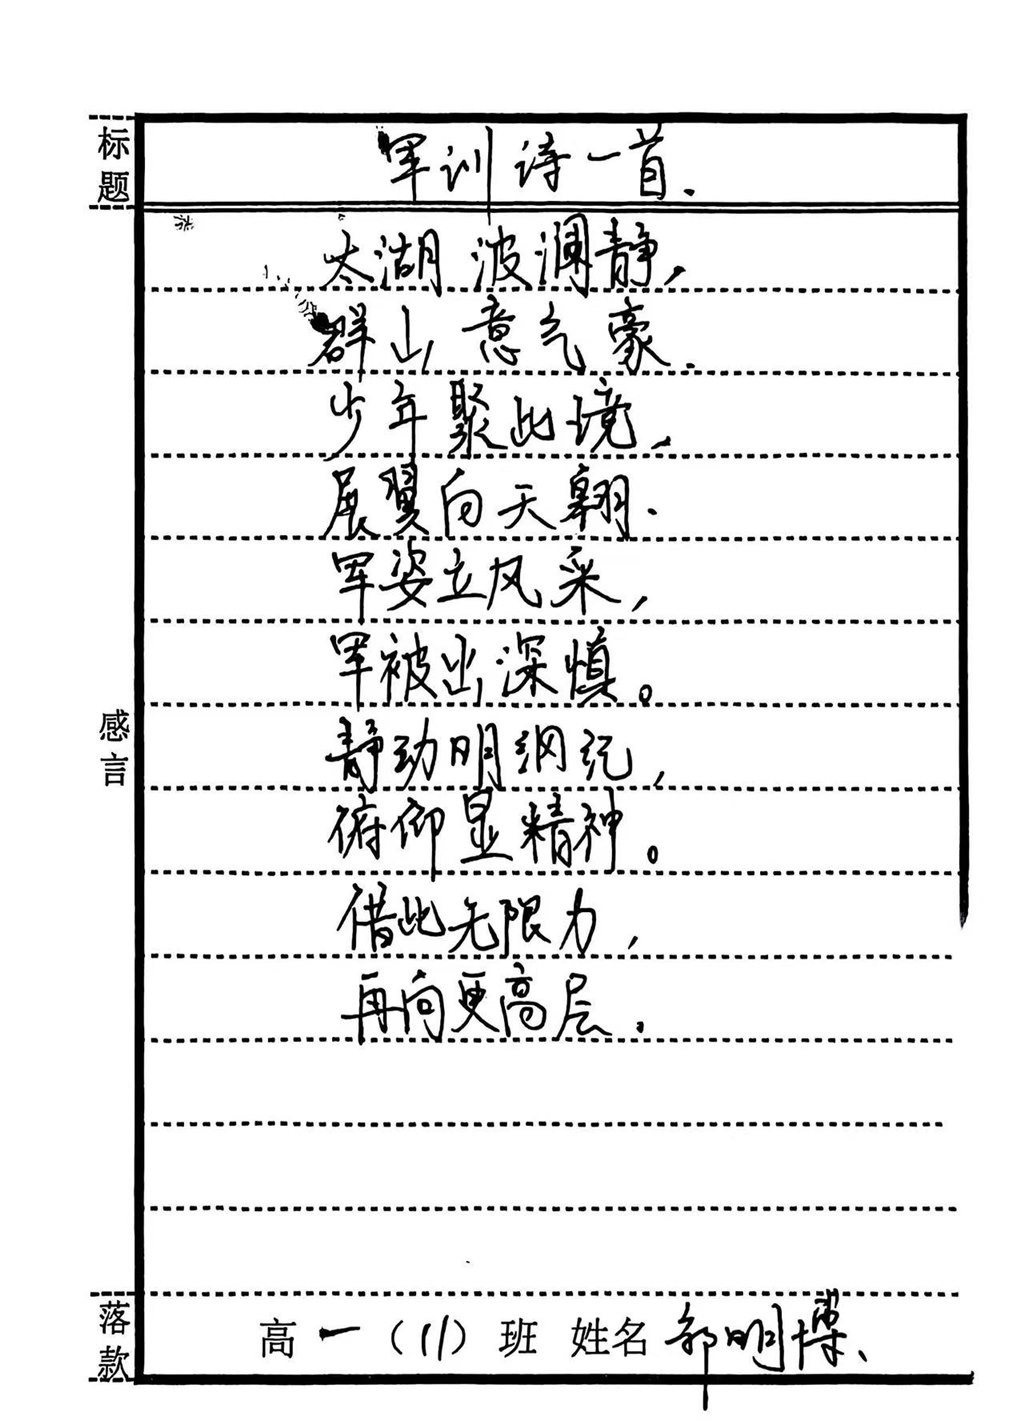 标题
军训诗一首.
太湖波澜静,
群山意气豪.
少年聚此境,
展翼向天翱.
军姿立风采,
军被出深慎。
静动明纲纪,
俯仰显精神。
借此无限力,
再向更高层.
感言
落款
高一(11)班 姓名 郭明博.